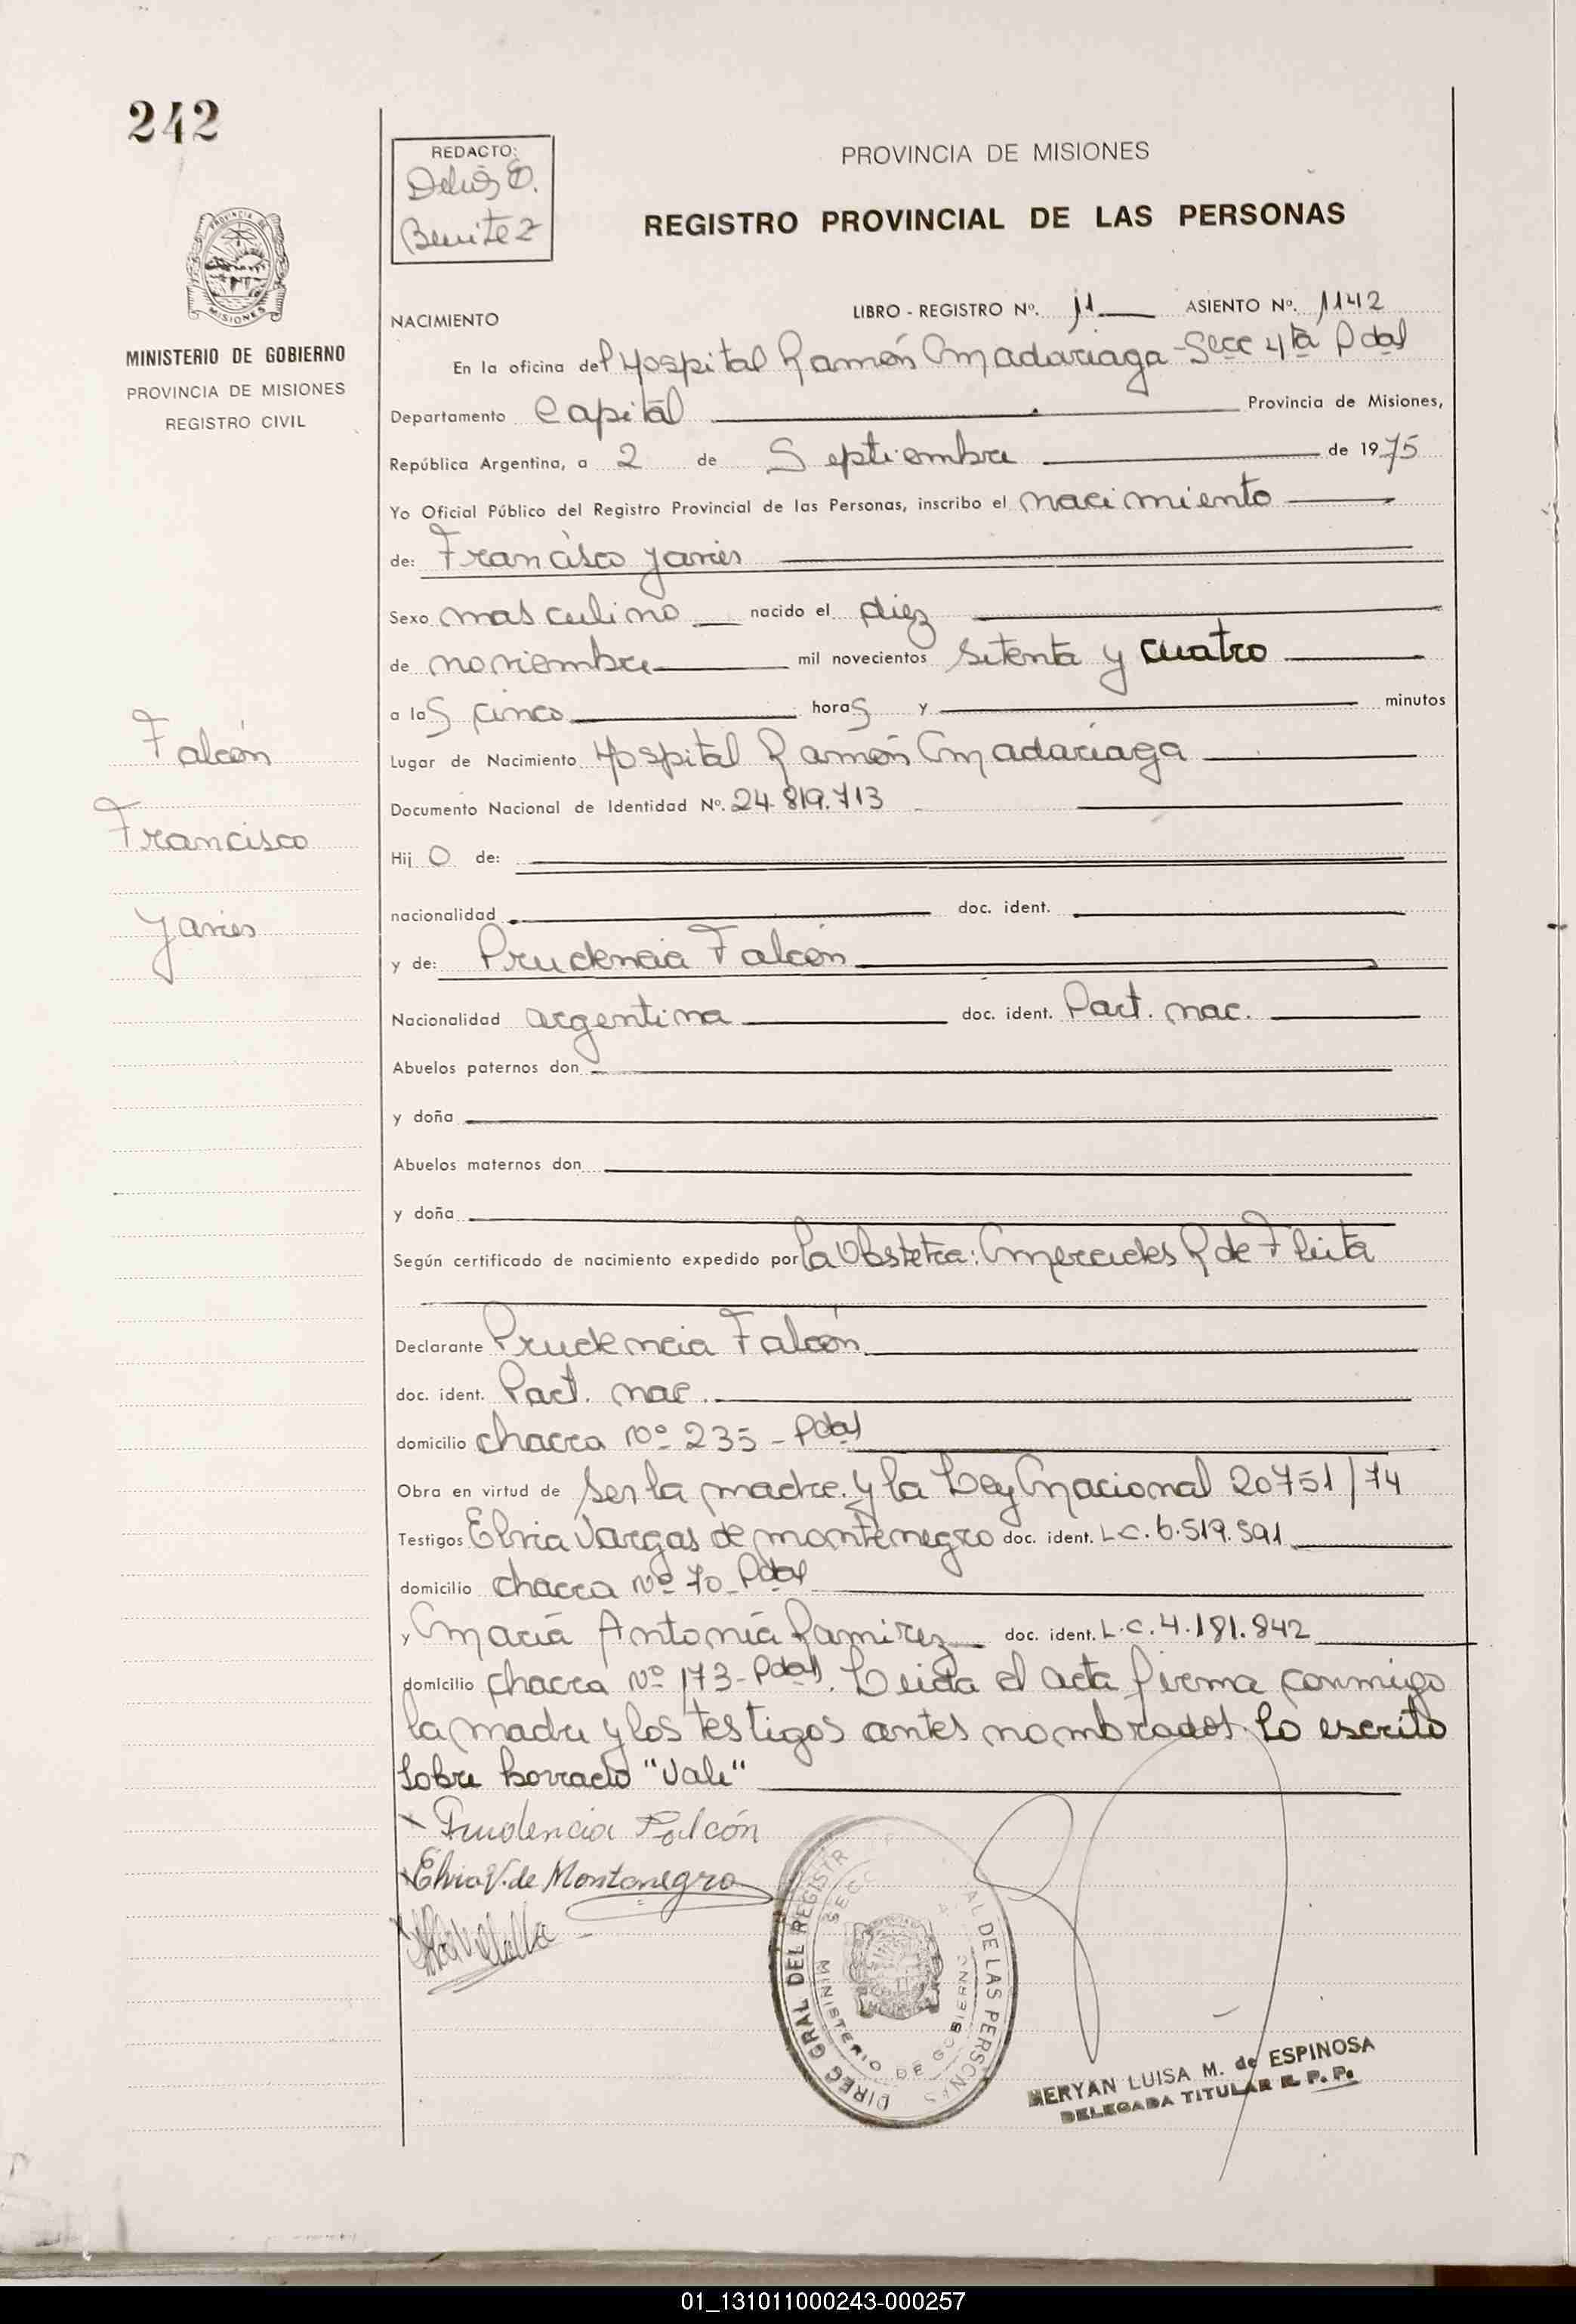 242
REDACTO:
Benitez
PROVINCIA DE MISIONES
REGISTRO PROVINCIAL DE LAS PERSONAS
MISIONES
MINISTERIO DE GOBIERNO
PROVINCIA DE MISIONES
REGISTRO CIVIL
NACIMIENTO
LIBRO - REGISTRO Nº. 11 ASIENTO Nº. 1142
En la oficina del Hospital Ramón Madariaga - Secc 4ta Pdas
Departamento Capital Provincia de Misiones,
República Argentina, a 2 de Septiembre de 1975
Yo Oficial Público del Registro Provincial de las Personas, inscribo el nacimiento
de: Francisco Javier
Sexo masculino nacido el diez
de noviembre mil novecientos setenta y cuatro
a las cinco horas y minutos
Lugar de Nacimiento Hospital Ramón Madariaga
Documento Nacional de Identidad Nº. 24.819.713
Hij o de:
nacionalidad doc. ident.
y de: Prudencia Falcón
Nacionalidad argentina doc. ident. Part. nac.
Abuelos paternos don
y doña
Abuelos maternos don
y doña
Según certificado de nacimiento expedido por la Obstetra: Mercedes R de Fleita
Declarante Prudencia Falcón
doc. ident. Part. nac.
domicilio chacra Nº 235 - Pdas
Obra en virtud de ser la madre. y la Ley Nacional 20751/74
Testigos Elvia Vargas de Montenegro doc. ident. L.C. 6.519.591
domicilio chacra Nº 70 - Pdas
y María Antonia Ramirez doc. ident. L.C. 4.181.842
domicilio chacra Nº 173 - Pdas. Leida el acta firma conmigo
la madre y los testigos antes nombrados. Lo escrito
sobre borrado "Vale"
Falcón
Francisco
Javier
Prudencia Falcón
Elvia V. de Montenegro
DIREC GRAL DEL REGISTR AL DE LAS PERSONAS
SECC
MINISTERIO DE GOBIERNO
NERYAN LUISA M. de ESPINOSA
DELEGADA TITULAR R. P. P.
01_131011000243-000257